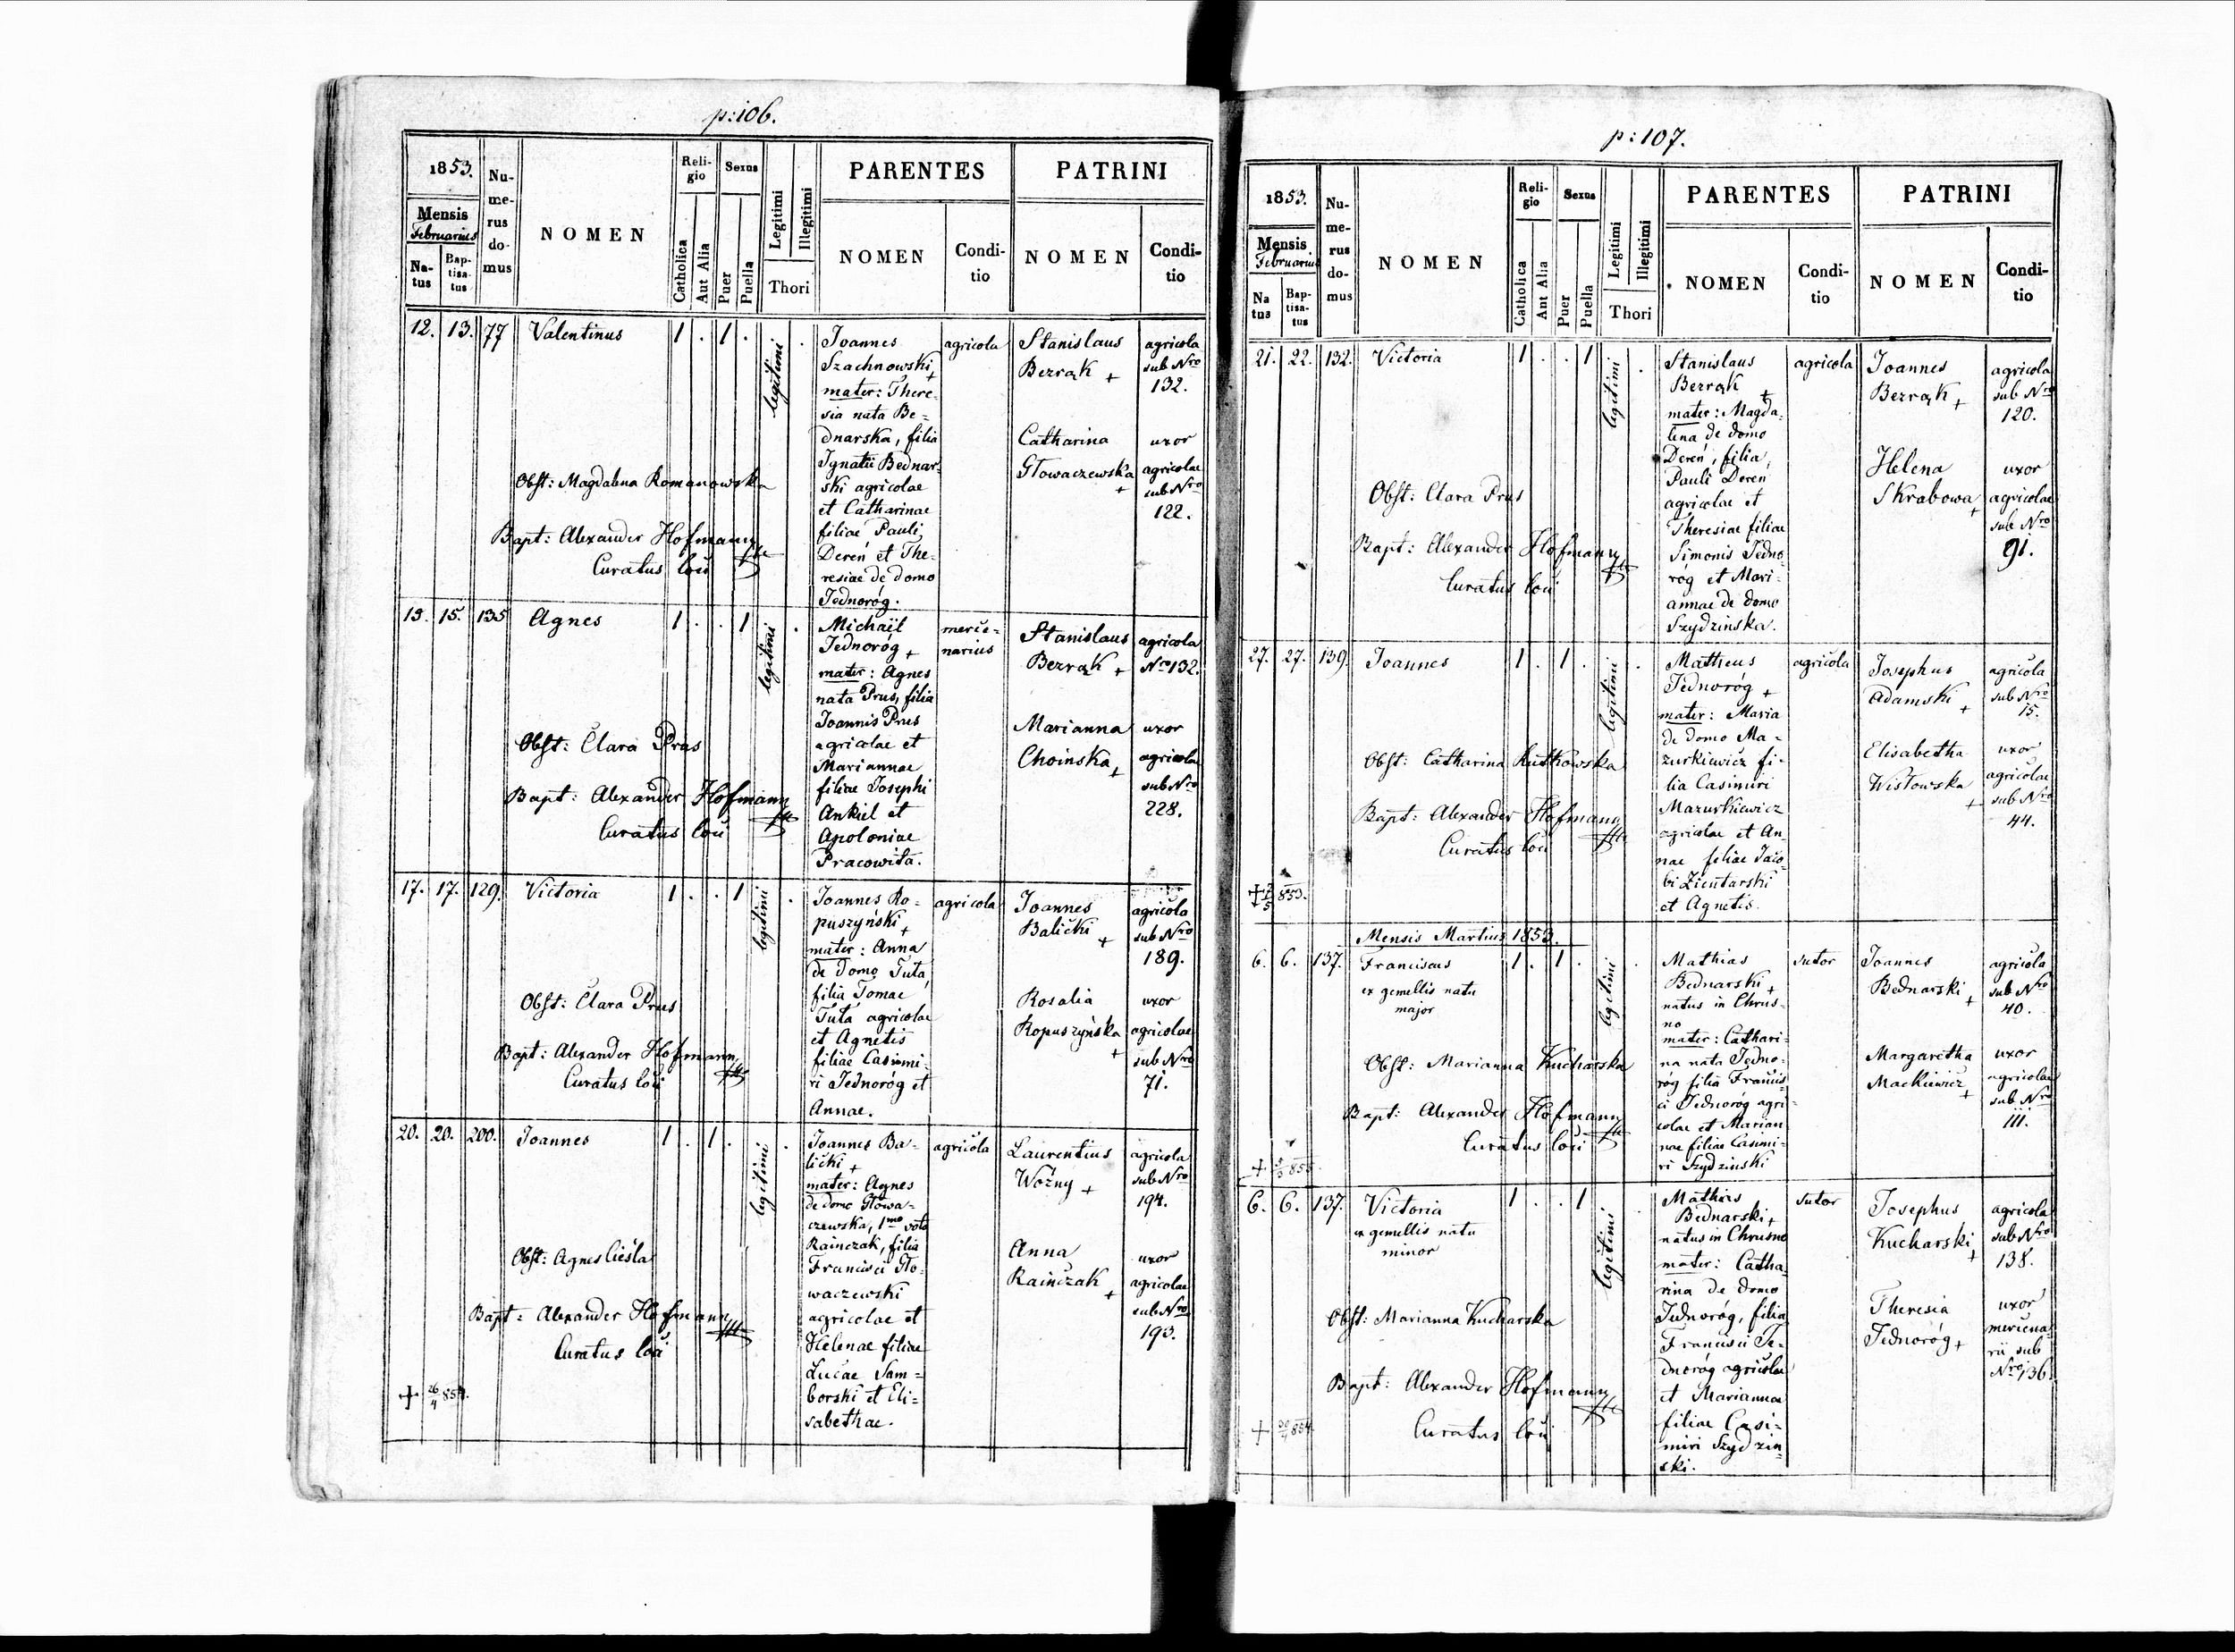 p: 106.
1853.
Mensis
Februarius
Na-
tus
Bap-
tisa-
tus
Nu-
me-
rus
do-
mus
NOMEN
Reli-
gio
Catholica
Aut Alia
Sexus
Puer
Puella
Legitimi
Illegitimi
Thori
PARENTES
NOMEN
Condi-
tio
PATRINI
NOMEN
Condi-
tio
12. 13. 77 Valentinus 1 . 1 .
legitimi
.
Obst: Magdalena Romanowska
Bapt: Alexander Hofmann
Curatus loci
Joannes
Szachnowski +
mater: There-
sia nata Be=
dnarska, filia
Ignatii Bednar-
ski agricolae
et Catharinae
filiae Pauli
Dereń et The-
resiae de domo
Jednoróg.
agricola
Stanislaus
Bezrąk +
agricola
sub Nro
132.
Catharina
Głowaczewska
+
uxor
agricolae
sub Nro
122.
13. 15. 135 Agnes 1 . . 1
legitimi
.
Obst: Clara Prus
Bapt: Alexander Hofmann
Curatus loci
Michaël
Jednoróg +
mater: Agnes
nata Prus, filia
Joannis Prus
agricolae et
Mariannae
filiae Josephi
Ankiel et
Apoloniae
Pracowita.
merce-
narius
Stanislaus
Bezrąk +
agricola
Nro 132.
Marianna
Choinska +
uxor
agricolae
sub Nro
228.
17. 17. 129. Victoria 1 . . 1
legitimi
.
Obst: Clara Prus
Bapt: Alexander Hofmann
Curatus loci
Joannes Ro=
puszyński +
mater: Anna
de domo Tuta,
filia Tomae
Tuta agricolae
et Agnetis
filiae Casimi-
ri Jednoróg et
Annae.
agricola
Joannes
Balicki
+
agricola
sub Nro
189.
Rosalia
Ropuszyńska
+
uxor
agricolae
sub Nro
71.
20. 20. 200. Joannes 1 . 1 .
legitimi
.
Obst: Agnes Cieśla
Bapt: Alexander Hofmann
Curatus loci
+ 26/4 854.
Joannes Ba-
licki +
mater: Agnes
de domo Głowa-
czewska, 1mo voto
Rainczak, filia
Francisci Gło-
waczewski
agricolae et
Helenae filiae
Lucae Sam=
borski et Eli=
sabethae.
agricola
Laurentius
Woźny +
agricola
sub Nro
194.
Anna
Rainczak +
uxor
agricolae
sub Nro
193.
p: 107.
1853.
Mensis
Februarius
Na
tus
Bap-
tisa-
tus
Nu-
me-
rus
do-
mus
NOMEN
Reli-
gio
Catholica
Ant Alia
Sexus
Puer
Puella
Legitimi
Illegitimi
Thori
PARENTES
NOMEN
Condi-
tio
PATRINI
NOMEN
Condi-
tio
21. 22. 132. Victoria 1 . . 1
legitimi
.
Obst: Clara Prus
Bapt: Alexander Hofmann
Curatus loci
Stanislaus
Bezrąk +
mater: Magda-
lena de domo
Dereń, filia
Pauli Dereń
agricolae et
Theresiae filiae
Simonis Jedno
róg et Mari-
annae de domo
Szydzinska.
agricola
Joannes
Bezrąk +
agricola
sub Nro
120.
Helena
Skrabowa +
uxor
agricolae
sub Nro
91.
27. 27. 139. Joannes 1 . 1 .
legitimi
.
Obst: Catharina Rutkowska
Bapt: Alexander Hofmann
Curatus loci
853.
Matheus
Jednoróg +
mater: Maria
de domo Ma-
zurkiewicz fi-
lia Casimiri
Mazurkiewicz
agricolae et An
nae filiae Jaco
bi Zientarski
et Agnetis.
agricola
Josephus
Adamski
+
agricola
sub Nro
15.
Elisabetha
Wisłowska
+
uxor
agricolae
sub Nro
44.
Mensis Martius 1853.
6. 6. 137. Franciscus 1 . 1 .
ex gemellis natu
major
legitimi
.
Obst: Marianna Kucharska
Bapt: Alexander Hofmann
Curatus loci
+
Mathias
Bednarski +
natus in Chrus-
no
mater: Cathari-
na nata Jedno-
róg filia Francis-
ci Jednoróg agri-
colae et Marian
nae filiae Casimi-
ri Szydzinski
sutor
Joannes
Bednarski +
agricola
sub Nro
40.
Margaretha
Mackiewicz +
uxor
agricolae
sub Nro
111.
6. 6. 137. Victoria 1 . . 1
ex gemellis natu
minor
legitimi
.
Obst: Marianna Kucharska
Bapt: Alexander Hofmann
Curatus loci
+ 854
Mathias
Bednarski +
natus in Chrusno
mater: Catha-
rina de domo
Jednoróg, filia
Francisci Je-
dnoróg agricolae
et Mariannae
filiae Casi-
miri Szydzin-
ski.
sutor
Josephus
Kucharski
+
agricola
sub Nro
138.
Theresia
Jednoróg +
uxor
mercena-
rii sub
Nro 136.